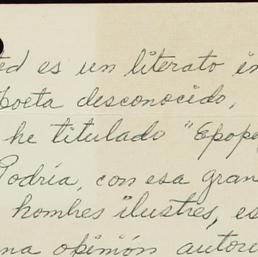 ted es un literato in
poeta desconocido,
he titulado "Epope
Podría, con esa gran
hombres ilustres, es
na opinión autori